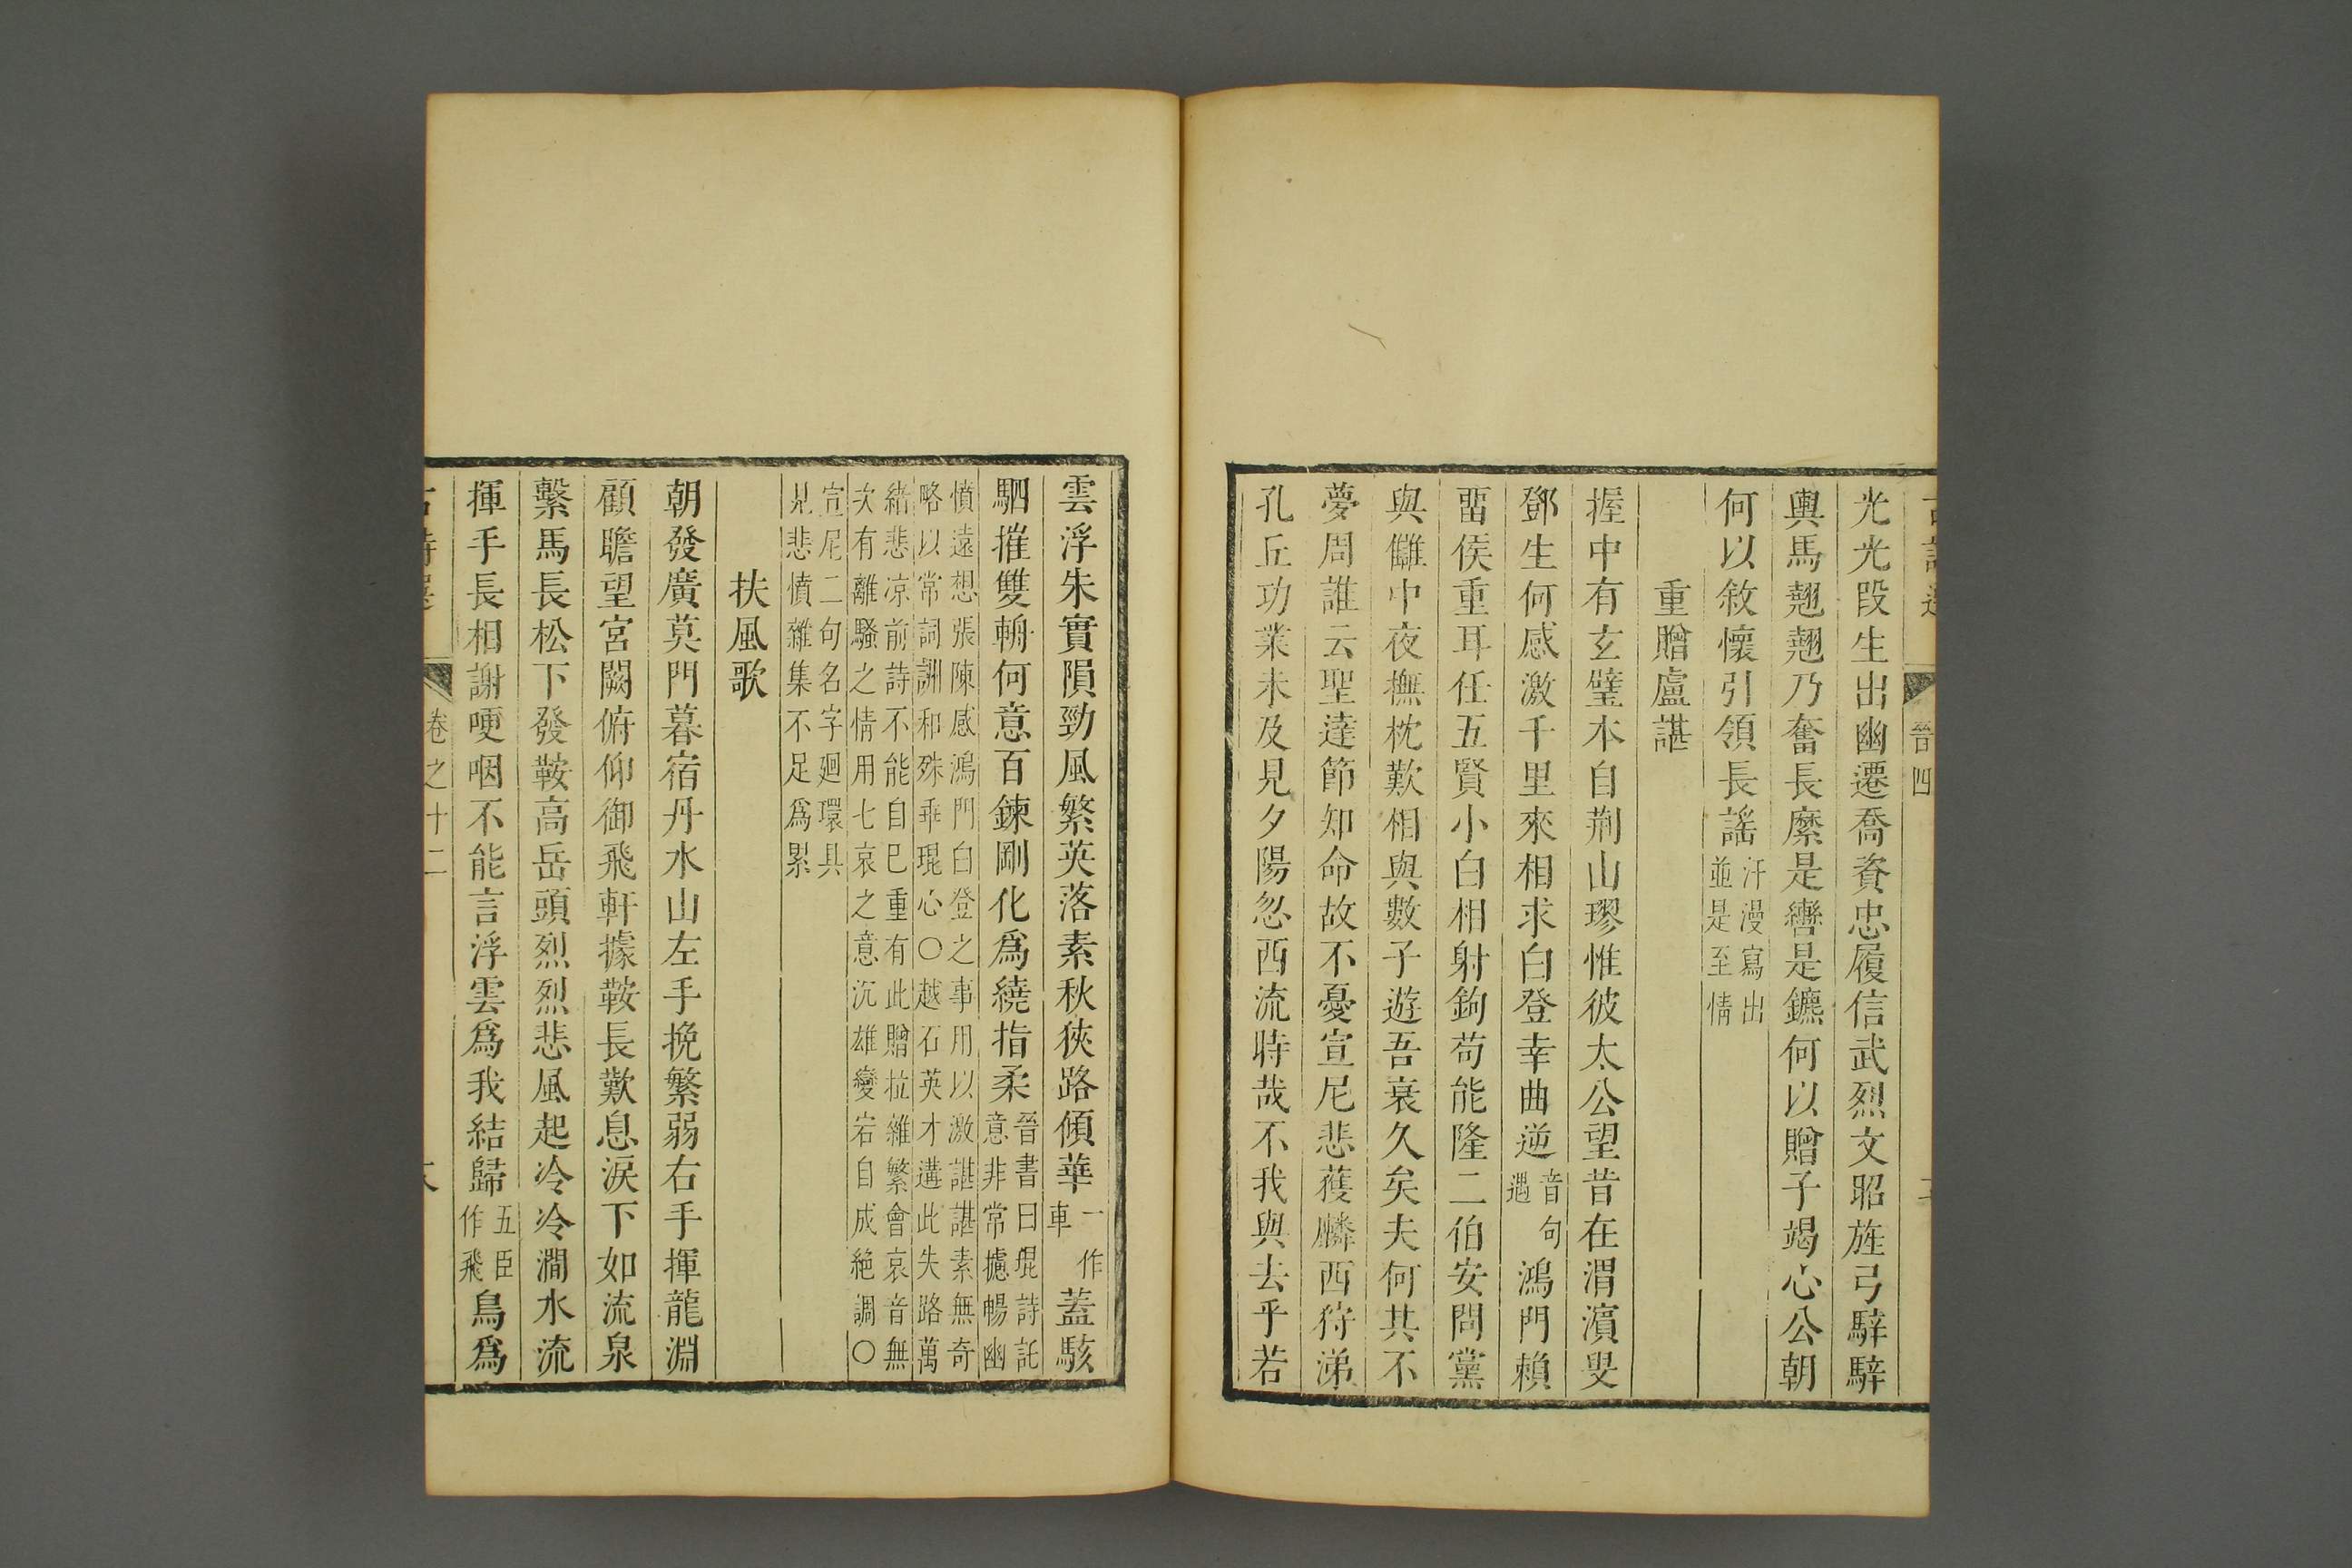 晉四
光光段生出幽遷喬資忠履信武烈文昭旌弓騂騂
輿馬翹翹乃奮長縻是轡是鑣何以贈子竭心公朝
何以敘懷引領長謠汗漫寫出並是至情
重贈盧諶
握中有玄璧本自荆山璆惟彼太公望昔在渭濵叟
鄧生何感激千里來相求白登幸曲逆音句遇鴻門賴
畱侯重耳任五賢小白相射鉤苟能隆二伯安問黨
與讎中夜撫枕歎相與數子遊吾衰久矣夫何其不
夢周誰云聖達節知命故不憂宣尼悲獲麟西狩涕
孔丘功業未及見夕陽忽西流時哉不我與去乎若
雲浮朱實隕勁風繁英落素秋狹路傾華一作車蓋駭
駟摧雙輈何意百鍊剛化爲繞指柔晉書曰琨詩託意非常攄暢幽
憤遠想張陳感鴻門白登之事用以激諶諶素無奇略以常詞詶和殊乖琨心○越石英才遘此失路萬
緒悲凉前詩不能自巳重有此贈拉雜繁會哀音無次有離騷之情用七哀之意沉雄變宕自成絶調○
宣尼二句名字廻環具見悲憤雜集不足爲累
扶風歌
朝發廣莫門暮宿丹水山左手挽繁弱右手揮龍淵
顧瞻望宮闕俯仰御飛軒據鞍長歎息淚下如流泉
繫馬長松下發鞍高岳頭烈烈悲風起冷冷澗水流
揮手長相謝哽咽不能言浮雲爲我結歸五臣作飛鳥爲
卷之十二